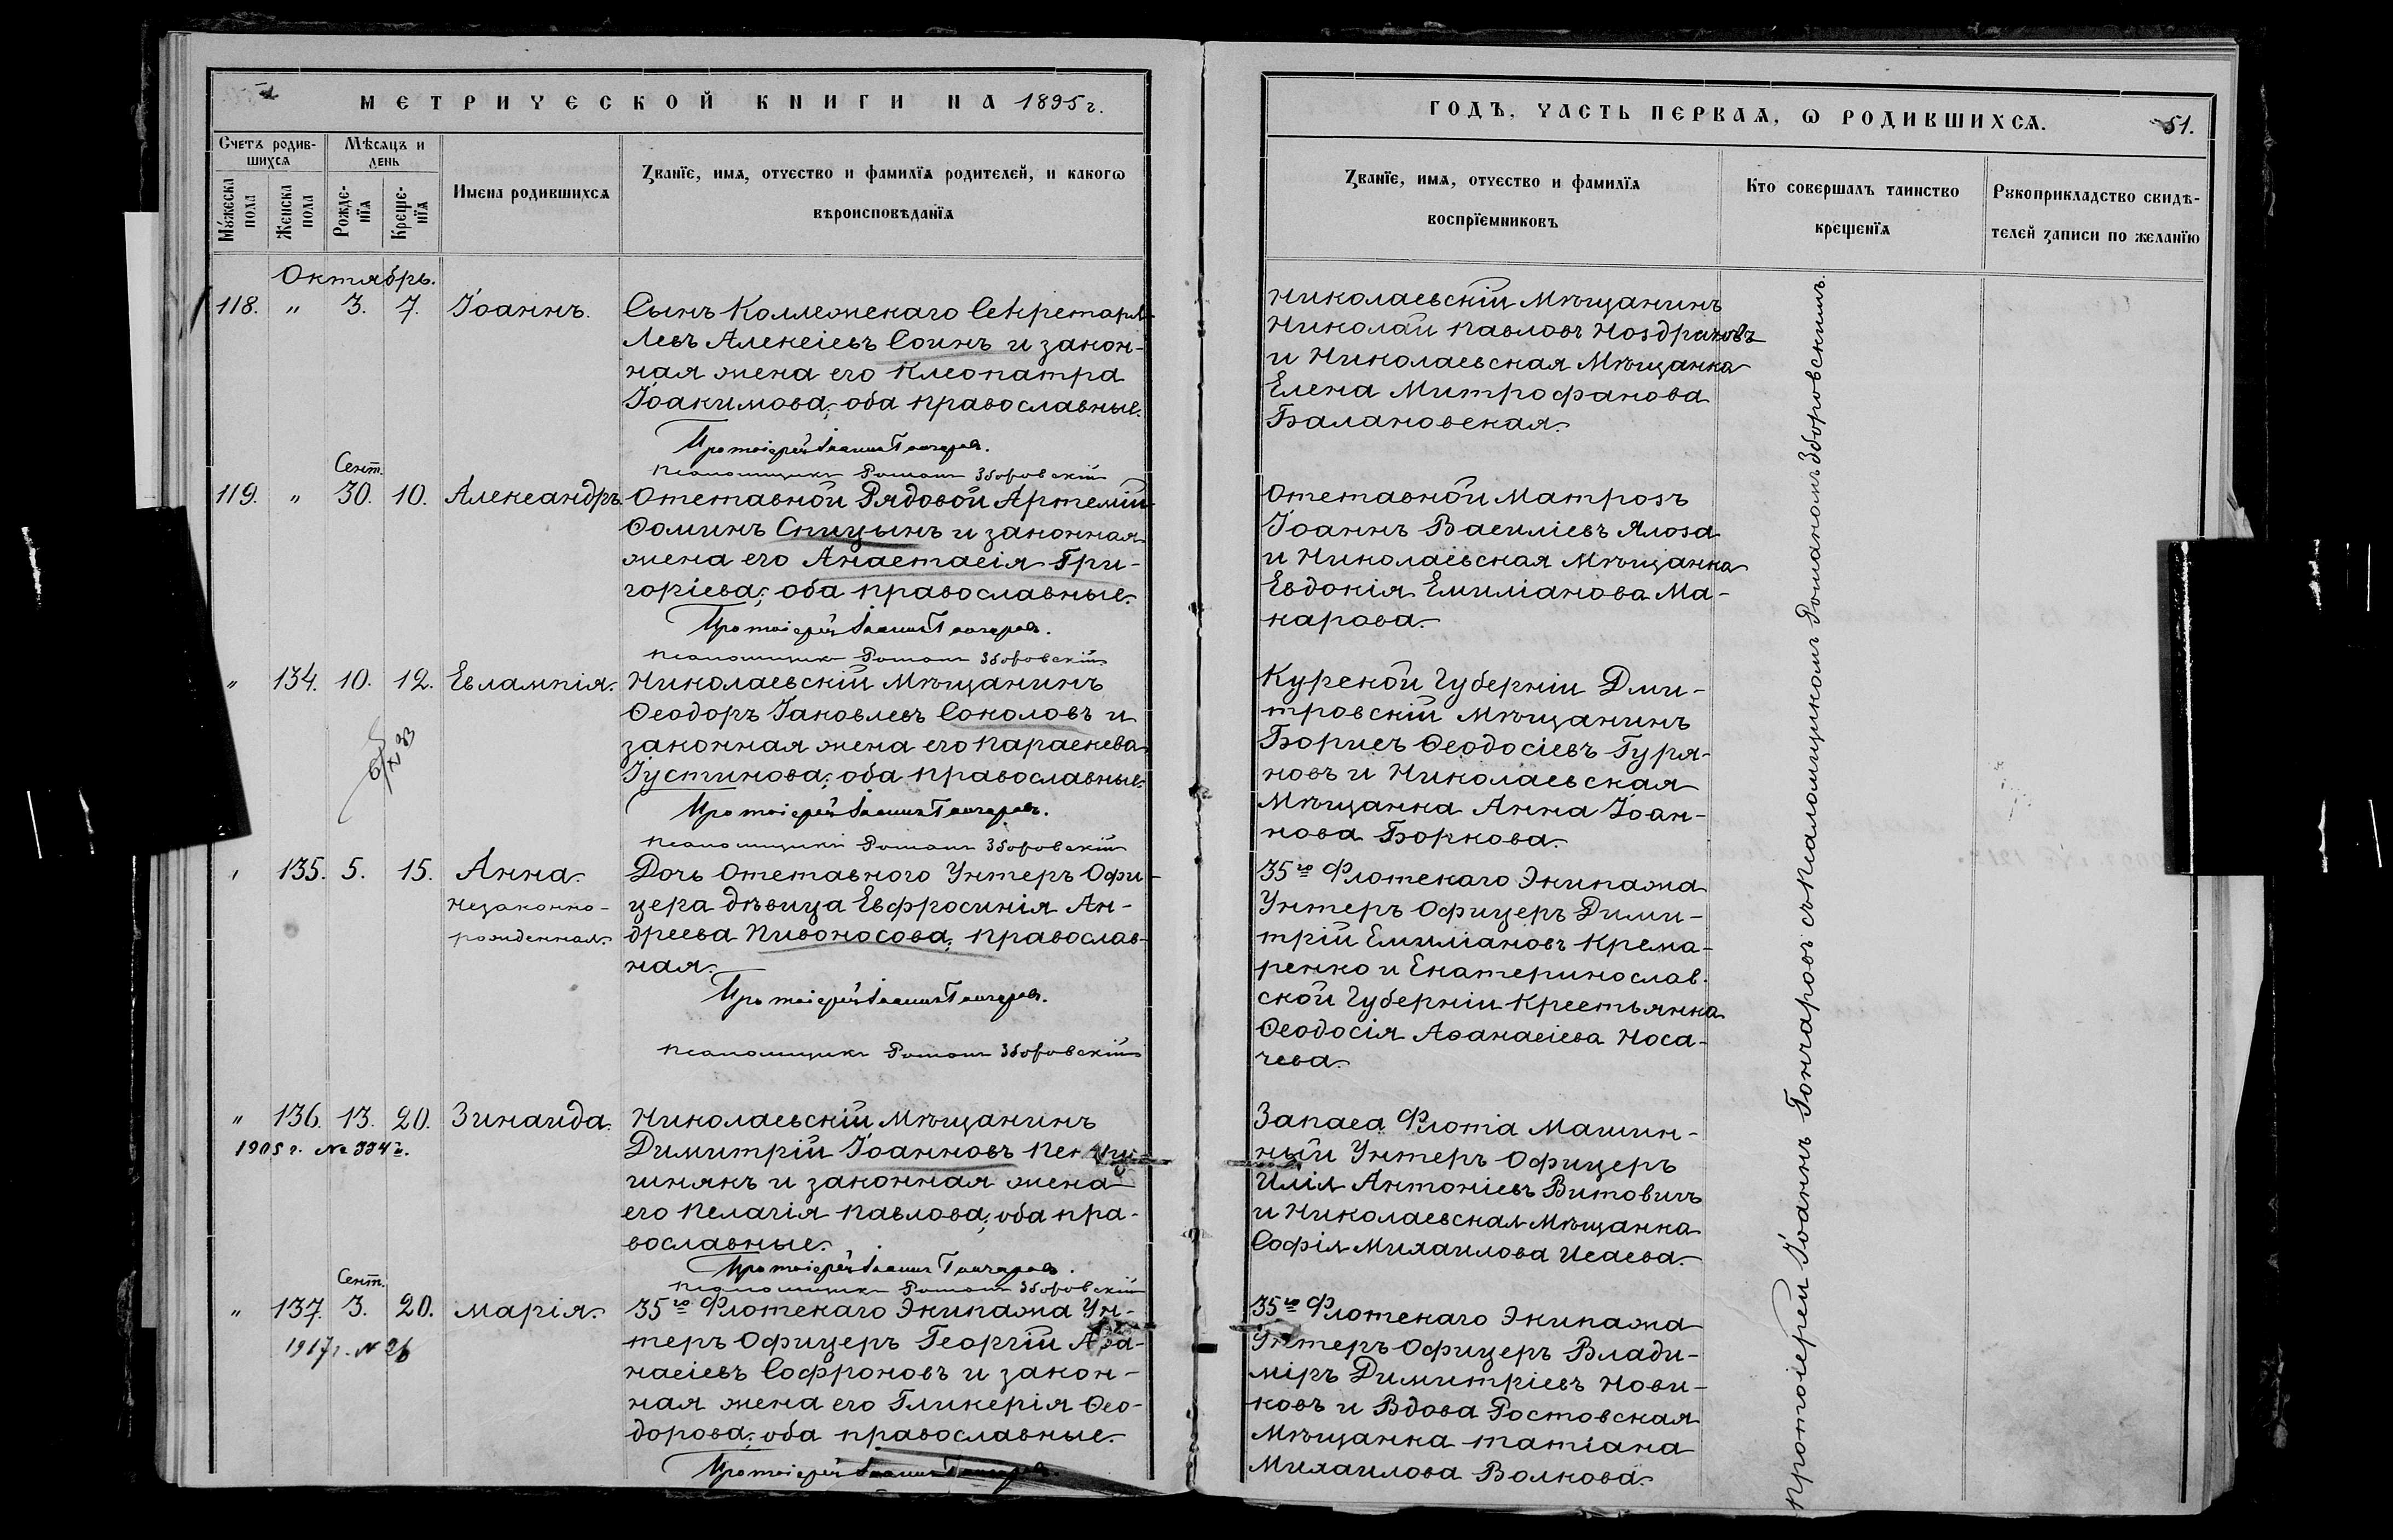 МЕТРИЧЕСКОЙ КНИГИ НА 1895 г.
Счетъ родив-
шихся
Мѣсяцъ и
день
Мужеска
пола
Женска
пола
Рожде-
нїя
Креще-
нїя
Имена родившихся
Званїе, имя, отчество и фамилїя родителей, и какогѡ
вѣроисповѣданїя
Октябрь.
118. " 3. 7. Іоаннъ.
Сынъ Коллежскаго Секретаря
Левъ Алексіевъ Соинъ и закон-
ная жена его Клеопатра
Іоакимова; оба православные.
Протоіерей Іоаннъ Гончаровъ.
Псаломщикъ Романъ Зборовскій
Сент.
119. " 30. 10. Александръ.
Отставной Рядовой Артемій
Ѳоминъ Спицынъ и законная
жена его Анастасія Гри-
горіева; оба православные.
Протоіерей Іоаннъ Гончаровъ.
Псаломщикъ Романъ Зборовскій
" 134. 10. 12. Евлампія.
Николаевскій Мѣщанинъ
Ѳеодоръ Іаковлевъ Соколовъ и
законная жена его Параскева
Іустинова; оба православные.
Протоіерей Іоаннъ Гончаровъ.
Псаломщикъ Романъ Зборовскій
" 135. 5. 15. Анна
незаконно-
рожденная.
Дочь Отставного Унтеръ Офи-
цера дѣвица Евфросинія Ан-
дреева Пивоносова, православ-
ная.
Протоіерей Іоаннъ Гончаровъ.
Псаломщикъ Романъ Зборовскій
" 136. 13. 20. Зинаида.
1905 г. №
Николаевскій Мѣщанинъ
Димитрій Іоанновъ
и законная жена
его Пелагія Павлова; оба пра-
вославные.
Протоіерей Іоаннъ Гончаровъ.
Псаломщикъ Романъ Зборовскій
Сент.
" 137. 3. 20. Марія.
1917 г. № 26
35го Флотскаго Экипажа Ун-
теръ Офицеръ Георгій Аѳа-
насіевъ Софроновъ и закон-
ная жена его Гликерія Ѳео-
дорова; оба православные.
Протоіерей Іоаннъ Гончаровъ.
ГОДЪ, ЧАСТЬ ПЕРВАЯ, Ѡ РОДИВШИХСЯ.
51.
Званїе, имя, отчество и фамилїя
воспрїемниковъ
Кто совершалъ таинство
крещенїя
Рукоприкладство свидѣ-
телей записи по желанїю
Николаевскій Мѣщанинъ
Николай Павловъ Ноздрачовъ
и Николаевская Мѣщанка
Елена Митрофанова
Балановская.
Отставной Матросъ
Іоаннъ Василіевъ Ялоза
и Николаевская Мѣщанка
Евдокія Емиліанова Ма-
карова.
Курской Губерніи Дми-
тровскій Мѣщанинъ
Борисъ Ѳеодосіевъ Гуря-
новъ и Николаевская
Мѣщанка Анна Іоан-
нова Боркова.
35го Флотскаго Экипажа
Унтеръ Офицеръ Дими-
трій Емиліановъ Крема-
ренко и Екатеринослав-
ской Губерніи Крестьянка
Ѳеодосія Аѳанасіева Носа-
чева.
Запаса Флота Машин-
ный Унтеръ Офицеръ
Илія Антоніевъ Витовичъ
и Николаевская Мѣщанка
Софія Михаилова Исаева.
35го Флотскаго Экипажа
Унтеръ Офицеръ Влади-
міръ Димитріевъ Нови-
ковъ и Вдова Ростовская
Мѣщанка Татіана
Михаилова Волкова.
Протоіерей Іоаннъ Гончаровъ съ Псаломщикомъ Романомъ Зборовскимъ.